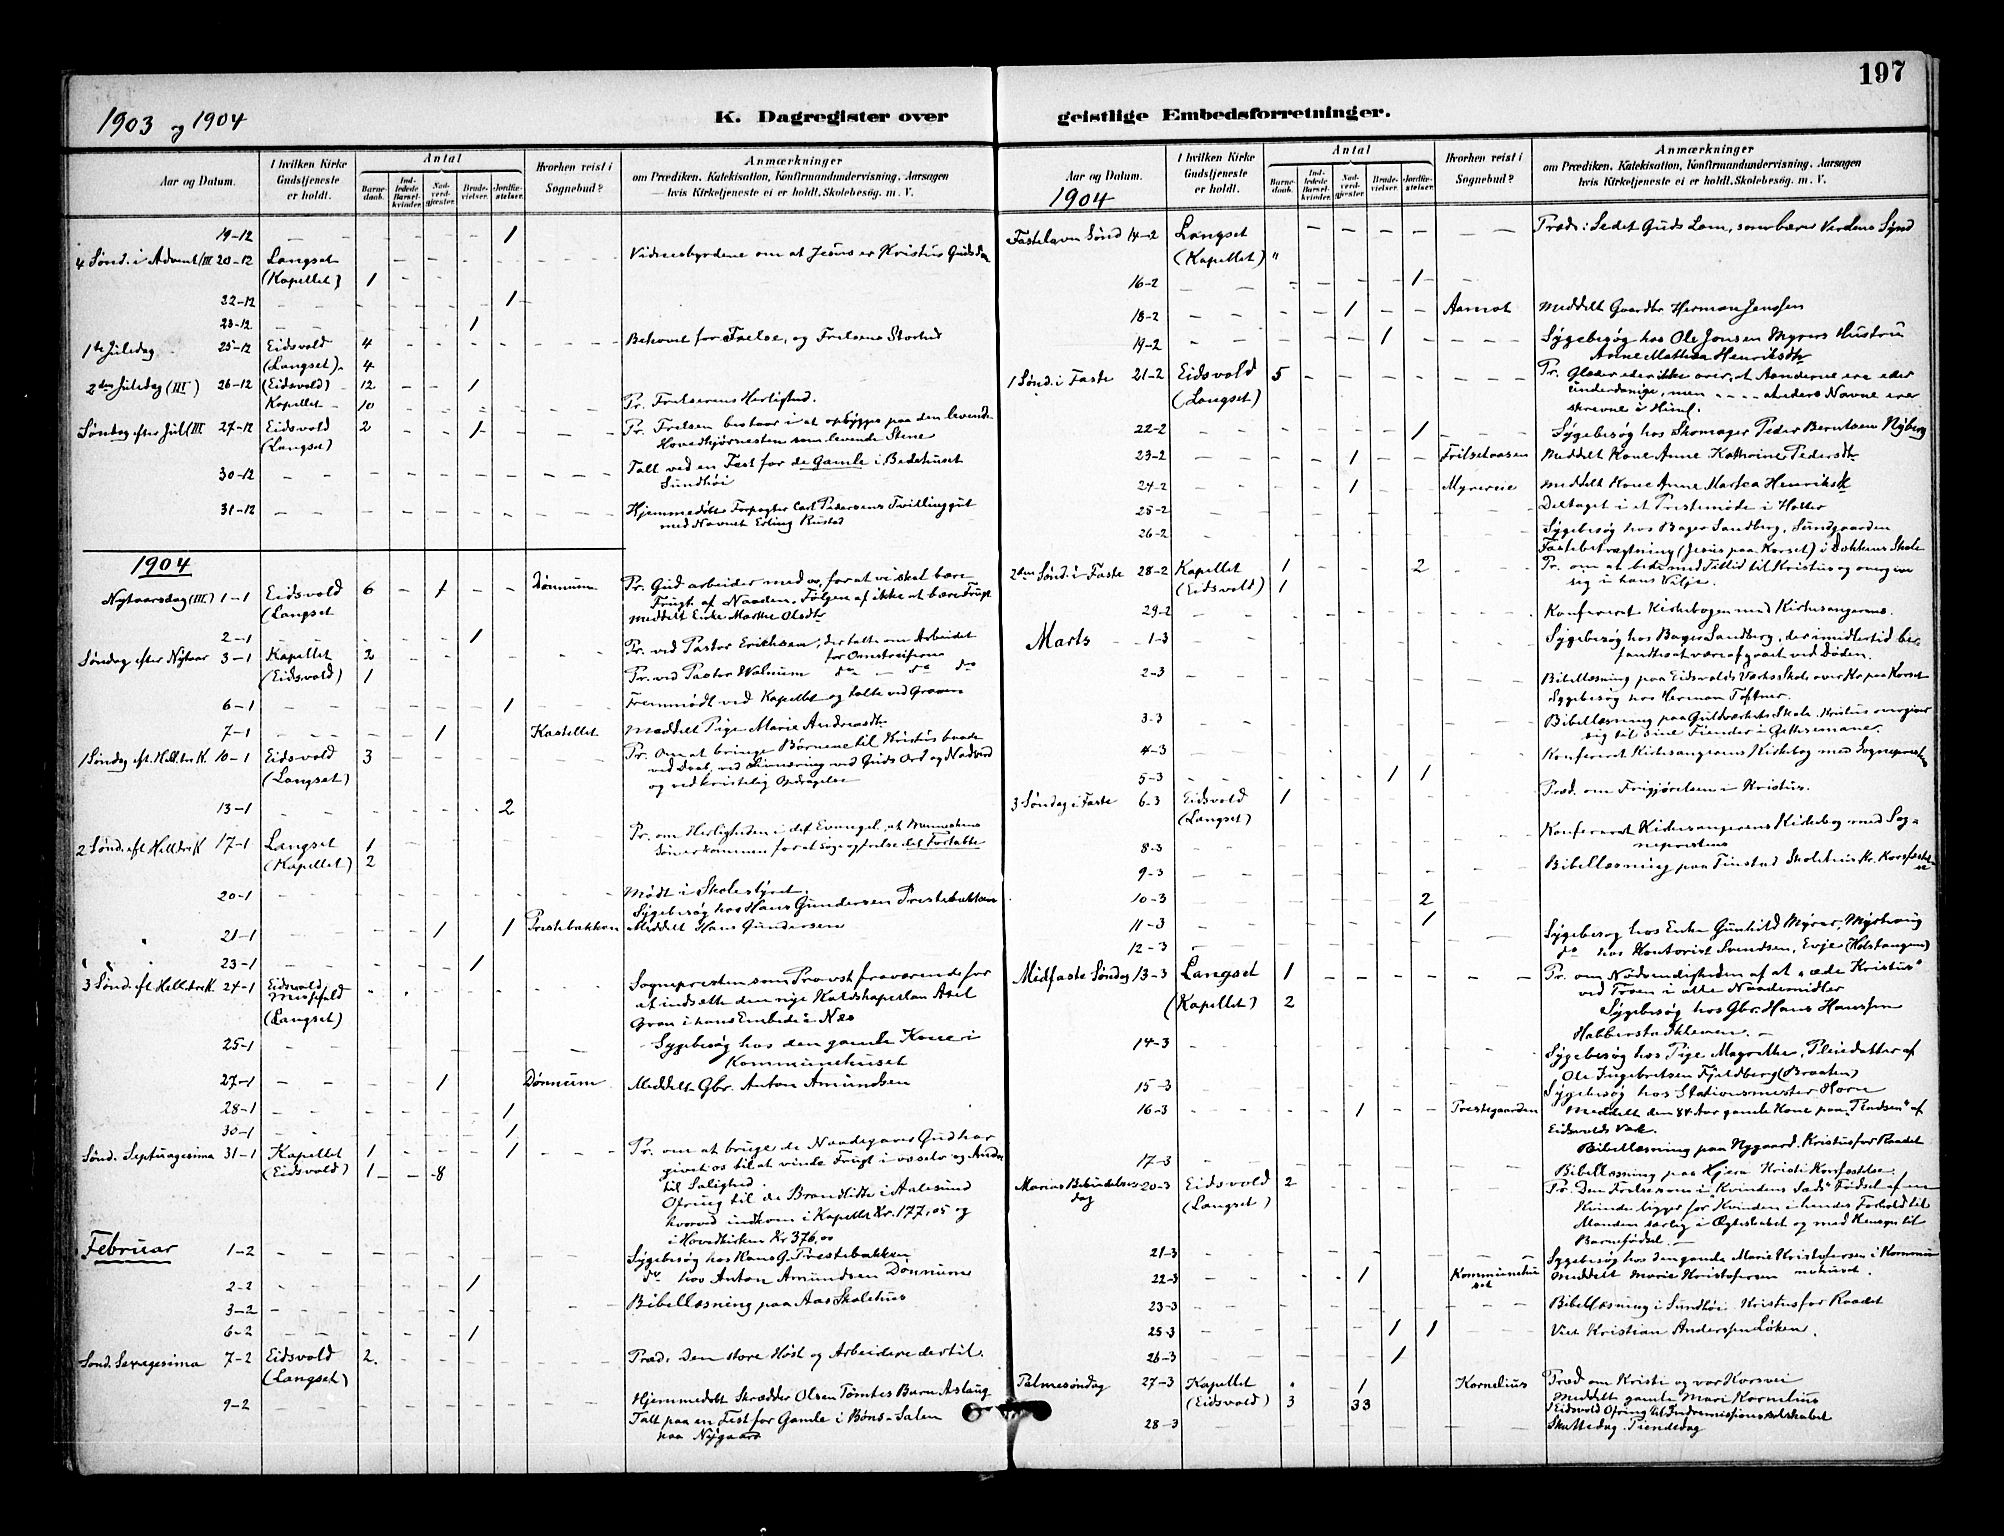 197
1903 og 1904
K. Dagregister over
geistlige Embedsforretninger.
Aar og Datum.
I hvilken Kirke Gudstjeneste er holdt.
Antal
Barnedaab.
Indledede Barselkvinder.
Nadverdgjester.
Brudevielser.
Jordfæstelser.
Hvorhen reist i Sognebud?
Anmærkninger
om Prædiken, Katekisation, Konfirmandundervisning, Aarsagen
hvis Kirketjeneste ei er holdt, Skolebesøg. m. V.
19-12 – – – – – – 1
4 Sønd. i Advent (III 20-12 Langset – – – – – Vidnesbyrdene om at Jesus er Kristus Guds
(Kapellet) 1 –
22-12 – – – – – 1
23-12 – – – – 1
1ste Juledag 25-12 Eidsvold 4 – – – – Behovet for Frelse, og Frelsens Storhed
(Langset) 4
2den Juledag (III) 26-12 (Eidsvold) 12 – – 1
Kapellet 10 – – – – Pr. Frelserens Herlighed.
Søndag efter Jul (III 27-12 Eidsvold 2 – – 1 – Pr. Frelsen bestaar i at opbygges paa den levende
(Langset) Hovedhjørnesten som levende Stene
30-12 – – – – – – Talt ved en Fest for de Gamle i Bedehuset
Sundhøi
31-12 – – – – – – Hjemmedøbt Forpagter Carl Pedersens Tvillinggut
med Navnet Erling Rustad
1904
Nytaarsdag (III.) 1-1 Eidsvold 6 – 1 – – Dønnum Pr. Gud arbeider med os, for at vi skal bære
(Langset Frugt af Naaden. Følgen af ikke at bære Frugt
meddelt Enke Marthe Olsdtr
2-1 – – – – 1
Søndag efter Nytaar 3-1 Kapellet 2 – – – – Pr. ved Pastor Erichsen, der talte om Arbeidet
for Omstreiferne
(Eidsvold) 1 Pr. ved Pastor Walnum do – do do
6-1 – – – – – 1 Fremmødt ved Kapellet og talte ved Graven
7-1 – – – 1 Kastellet Meddelt Pige Marie Andreasdtr
1 Søndag eft. Hell. tr. K. 10-1 Eidsvold 3 – – – – Pr. Om at bringe Børnene til Kristus baade
(Langset) ved Daab, ved ved Guds Ord og Nadverd
og ved kristelig Opdragelse
13-1 – – – – – 2
2 Sønd. eft Hell tr K 17-1 Langset 1 – – – – Pr. om Herligheden i det Evangel. at Menneskens
(Kapellet) 2 Søn er kommen for at søge og frelse det Fortabte
20-1 – – – – – – Mødt i Skolestyret.
Sygebesøg hos Hans Gundersen Prestebakken
21-1 – – – 1 1 Prestebakken Meddelt Hans Gundersen
23-1 – – – – 1
3 Sønd. eft Hell. tr K. 24-1 Eidsvold
Messefald
(Langset) Sognepresten som Provst fraværende for
at indsætte den nye Kaldskapellan Axel
Gran i hans Embede i Næs
25-1 – – – – – – Sygebesøg hos den gamle Kone i
Kommunehuset
27-1 – – – 1 Dønnum Meddelt Gbr. Anton Amundsen
28-1 – – – – – 1
30-1 – – – – – 1
Sønd. Septuagesima 31-1 Kapellet 1 – – – 1 Pr. om at bruge de Naadegaver Gud har
(Eidsvold) 1 – – 8 givet os til at vinde Frugt i os selv og Andre
til Salighed.
Ofring til de Brandlidte i Aalesund
hvorved indkom i Kapellet Kr. 177,05 og
i Hovedkirken Kr 376,00
Februar 1-2 – – – – – Sygebesøg hos Hans G. Prestebakken
do hos Anton Amundsen Dønnum
2-2 – – – – 1
3-2 – – – – – – Bibellæsning paa Aas Skolehus
6-2 – – – – 1
Sønd. Sexagesima 7-2 Eidsvold 2. – – – – Præd: Den store Høst og Arbeidere dertil.
(Langset)
9-2 – – – – – – Hjemmedøbt Skrædder Olsen Tømtes Barn Aslaug
Talt paa en Fest for Gamle i Bøns-Salen
paa Nygaard
Aar og Datum.
1904
I hvilken Kirke Gudstjeneste er holdt.
Antal
Barnedaab.
Indledede Barselkvinder.
Nadverdgjester.
Brudevielser.
Jordfæstelser.
Hvorhen reist i Sognebud?
Anmærkninger
om Prædiken, Katekisation, Konfirmandundervisning, Aarsagen
hvis Kirketjeneste ei er holdt, Skolebesøg m. V.
Fastelavn Sønd 14-2 Langset – – – – – – Præd: i Sedet Guds Lam, som bærer Verdens Synd
(Kapellet) "
16-2 – – – – – 1
18-2 – – – 1 – – Aamot Meddelt Gaardbr Herman Jenssen
19-2 – – – – 1 – Sygebesøg hos Ole Jonsen Myrers Hustru
Anne Mathea Henriksdtr
1 Sønd. i Faste 21-2 Eidsvold 5 – – – – Pr. Glæder eder ikke over, at Aanderne ere eder
(Langset) underdanige, men - - - - at eders Navne ere
skrevne i Himl.
22-2 – – – – – 1 Sygebesøg hos Skomager Peder Berntsen Nyberg
23-2 – – – 1 – – Frilsetaasen Meddelt Kone Anne Kathrine Pedersdtr
24-2 – – – 1 – – Myrereie Meddelt Kone Anne Martea Henriksdtr
25-2 – – – – – – Deltaget i et Prestemøde i Holter
26-2 – – – – – – Sygebesøg hos Bager Sandberg, Sundgaarden
Fastebetragtning (Jesus paa Korset) i Dokkens Skole
2den Sønd. i Faste 28-2 Kapellet 1 – – – 2 Pr. om at bede med Tillid til Kristus og overgive
(Eidsvold) 1 sig i hans Vilje.
29-2 – – – – – – Konfereret Kirkebogen med Kirkesangerens.
Marts 1-3 – – – – – – Sygebesøg hos Bager Sandberg, der imidlertid be-
fandtes at være afgaaet ved Døden.
2-3 – – – – – – Bibellæsning paa Eidsvolds Værks Skole over Kr paa Korset
Sygebesøg hos Herman Toftner.
3-3 – – – – – – Bibellæsning paa Guldværkets Skole. Kristus overgiver
sig til sine Fiender i Gethsemane.
4-3 – – – – – – Konfereret Kirkesangerens Kirkebog med Sogneprestens
5-3 – – – – 1 1
3 Søndag i Faste 6-3 Eidsvold 1 – – – – Præd. om Frigjørelsen i Kristus.
(Langset)
8-3 – – – – – – Konfereret Kirkesangerens Kirkebog med Sog-
neprestens
9-3 – – – – – – Bibellæsning paa Finstad Skolehus Kr. Korsfæstelse
10-3 – – – – – 2
11-3 – – – – – 1
12-3 – – – – – – Sygebesøg hos Enke Gunhild Myrer,
do hos Kontorist Svendsen, Evje (Holstangen)
Midfaste Søndag 13-3 Langset 1 – – – – Pr. om Nødvendigheden af at „æde Kristus“
(Kapellet) 2 ved Troen i alle Naadermidler
Sygebesøg hos Gbr. Hans Hansen
Habberstadkleven. –
14-3 – – – – – – Sygebesøg hos Pige Magrethe, Pleiedatter af
Ole Ingebretsen Fjeldberg (Braaten)
15-3 – – – – – – Sygebesøg hos Stationsmester Horn
16-3 – – – 1 – – Prestegaarden Meddelt den 84 Aar gamle Kone paa af
Eidsvolds Værk.
17-3 – – – – – – Bibellæsning paa Nygaard. Kristus for Raadet
Bibellæsning paa Hjera Kristi Korsfæstelse.
Marias Bebudelses- 20-3 Eidsvold 2 – – – – Pr. Den Frelse som i „Kvindens Sæd“ Fødsel af en
dag (Langset) Kvinde ligger for Kvinden i hendes Forhold til
Manden særlig i Ægteskabet og med Hensyn til
Barnefødsel. –
21-3 – – – – – – Sygebesøg hos den gamle Marie Kristofersen i Kommu-
nehuset.
22-3 – – – 1 Kommunehuset Meddelt Marie Kristofersen
23-3 – – – – – – Bibellæsning i Sundhøi. Kristus for Raadet
25-3 – – – – 1 1 Viet Kristian Anderssen Løken.
26-3 – – – – 1
Palmesøndag 27-3 Kapellet " – 1 – – Kornelius Præd om Kristi og vor Korsvei
(Eidsvold) 3 33 Meddelt gamle Mari Kornelius
I Eidsvold Ofring til Indremissionsselskabet
28-3 – – – – – – Skattedag. Tiendedag